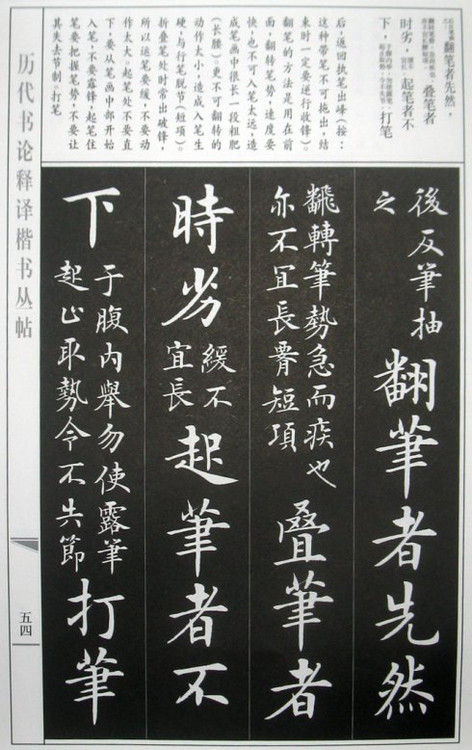 翻笔者先然,
叠笔者
时劣,
起笔者不
下,
打笔
后,返回执笔出峰(按:
这种带笔不可拖出,结
束时一定要逆行收锋)。
翻笔的方法是用在前
面,翻转笔势,速度要
快,也不可入笔太远,造
成笔画中很长一段粗肥
(长腰)更不可翻转的
动作太小,造成入笔生
硬,与行笔脱节(短项)。
折叠笔处时常出破锋,
所以运笔要缓,不要动
作太大。起笔处不要直
下,要从笔画中部开始
入笔,不要露锋,起笔住
笔要把握笔势,不要让
其失去节制。打笔
後反筆抽
之
翻筆者先然
翻轉筆勢急而疾也
亦不宜長腰短項
疊筆者
時劣
緩不
宜長
起筆者不
下
于腹内舉勿使露筆
起止取勢令不失節
打筆
历代书论释译楷书丛帖
五四